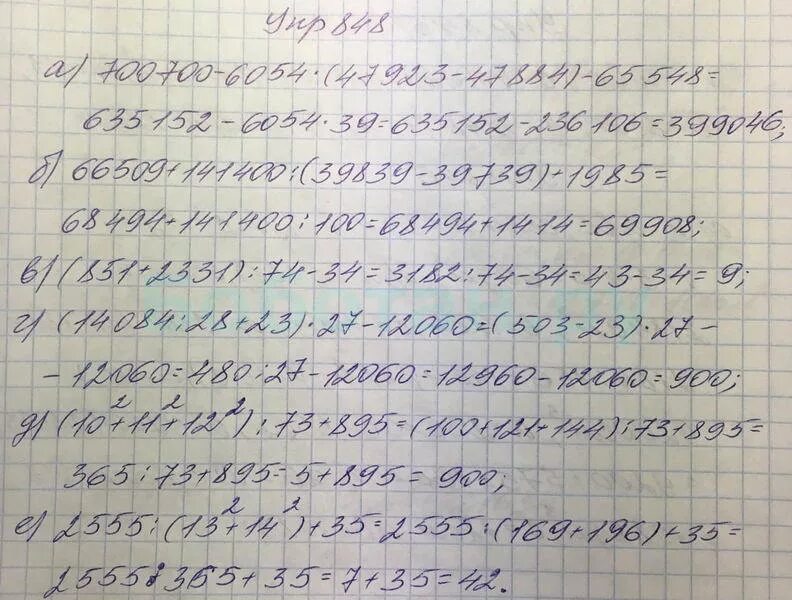 Упр 848
а) 700700-6054·(47923-47884)-65548=
635152-6054·39=635152-236106=399046;
б) 66509+141400:(39839-39739)+1985=
68494+141400:100=68494+1414=69908;
в) (851+2331):74-34=3182:74-34=43-34=9;
г) (14084:28+23)·27-12060=(503-23)·27-
-12060=480:27-12060=12960-12060=900;
д) (10²+11²+12²):73+895=(100+121+144):73+895=
365:73+895=5+895=900;
е) 2555:(13²+14²)+35=2555:(169+196)+35=
2555:365+35=7+35=42.